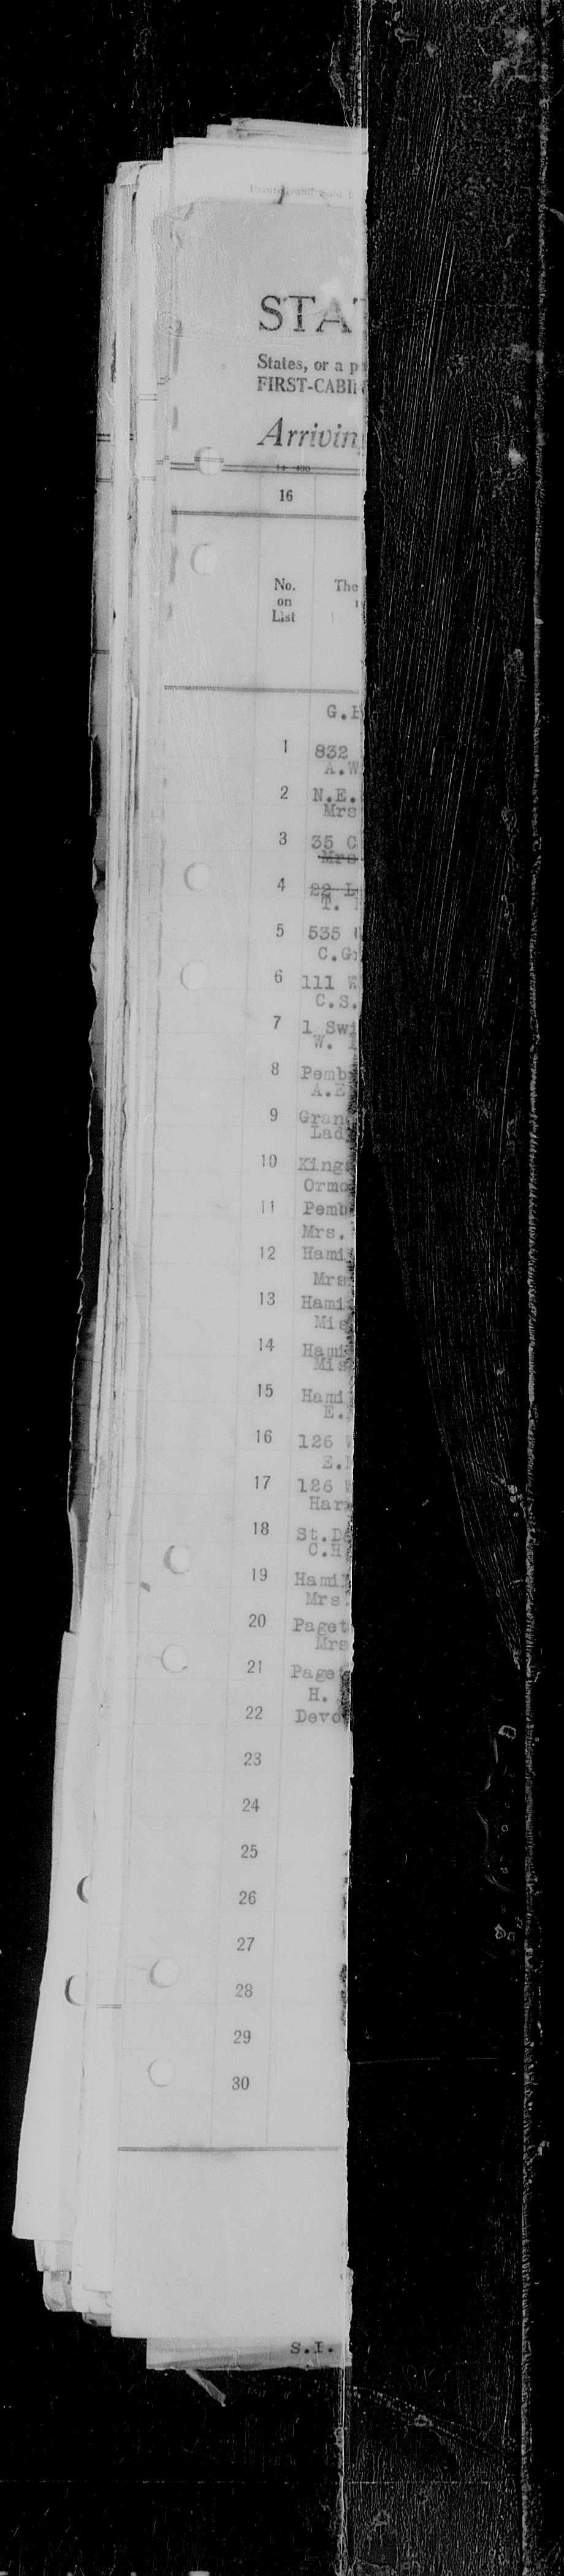 Printed and Sold b
STAT
States, or a p
FIRST-CABIN
Arriving
16
No.
on
List
The
G.H
1 832
A.W
2 N.E.
Mrs
3 35 C
Mrs
4 22 L
T.
5 535
C.Gr
6 111 W
C.S.
7 1 Swi
W.
8 Pemb
A.E
9 Gran
Lad
10 Kings
Ormo
11 Pemb
Mrs.
12 Hami
Mrs
13 Hami
Mis
14 Hami
Mis
15 Hami
E.
16 126
E.
17 126
Har
18 St.D
C.H
19 Hami
Mrs.
20 Paget
Mrs
21 Paget
H.
22 Devo
23
24
25
26
27
28
29
30
S.I.